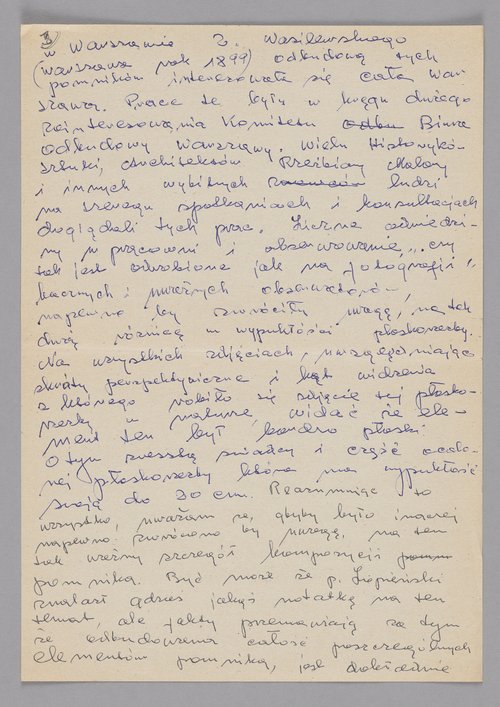 3
w Warszawie Z. Wasilewskiego
(Warszawa rok 1899) odbudową tych
pomników interesowała się cała War-
szawa. Prace te były w kręgu dużego
zainteresowania Komitetu Odbu Biura
odbudowy Warszawy. Wielu Historykó-
sztuki, Architektów Rzeźbiarzy Malarzy
i innych wybitnych ludzi
na szeregu spotkaniach i konsultacjach
doglądali tych prac. Liczne odwiedzi-
ny w pracowni i obserwowanie, „czy
tak jest odrobione jak na fotografii",
bacznych i uważnych obserwatorów,
napewno by zwróciły uwagę, na tak
dużą różnicę w wypukłości płaskorzeźby.
Na wszystkich zdjęciach, uwzględniając
skróty perspektywiczne i kąt widzenia
z którego robiło się zdjęcie tej płasko-
rzeźby w naturze, widać że ele-
ment ten był bardzo płaski.
O tym zresztą świadczy i część ocalo-
nej płaskorzeźby która ma wypukłość
swoją do 20 cm. Reasumując to
wszystko, uważam że, gdyby było inaczej
napewno zwrócono by uwagę, na ten
tak ważny szczegół kompozycji pomn
pomnika. Być może że p. Łopieński
znalazł gdzieś jakąś notatkę na ten
temat, ale fakty przemawiają za tym
że odbudowana całość poszczególnych
elementów pomnika, jest dokładnie